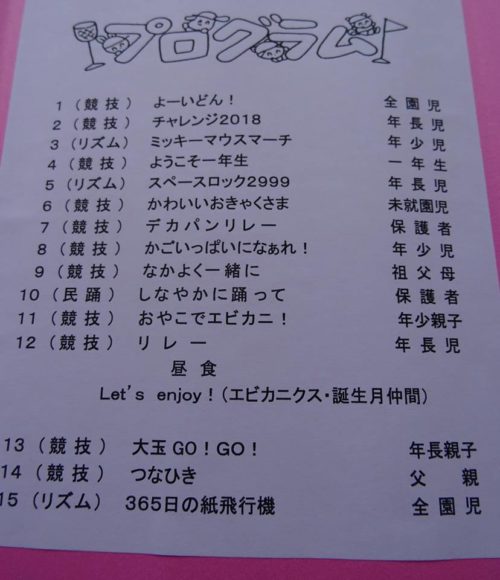 プログラム
1（競技） よーいどん！ 全園児
2（競技） チャレンジ2018 年長児
3（リズム） ミッキーマウスマーチ 年少児
4（競技） ようこそ一年生 一年生
5（リズム） スペースロック2999 年長児
6（競技） かわいいおきゃくさま 未就園児
7（競技） デカパンリレー 保護者
8（競技） かごいっぱいになぁれ！ 年少児
9（競技） なかよく一緒に 祖父母
10（民踊） しなやかに踊って 保護者
11（競技） おやこでエビカニ！ 年少親子
12（競技） リレー 年長児
昼食
Let's enjoy！（エビカニクス・誕生月仲間）
13（競技） 大玉GO！GO！ 年長親子
14（競技） つなひき 父親
15（リズム） 365日の紙飛行機 全園児